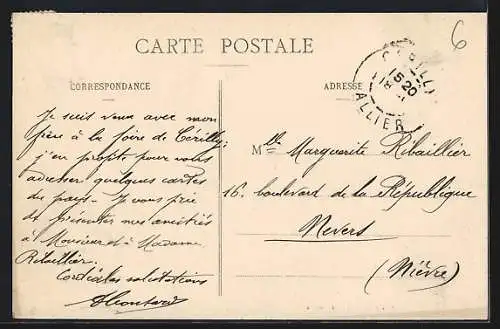 6
CARTE POSTALE
CORRESPONDANCE
ADRESSE
CERILLY
15 20
ALLIER
Je suis venu avec mon
père à la foire de Cérilly;
j'en profite pour vous
adresser quelques cartes
du pays. Je vous prie
de présenter mes amitiés
à Monsieur et à Madame
Ribaillier.
Cordiales salutations
Mlle Marguerite Ribaillier
16. boulevard de la République
Nevers
(Nièvre)